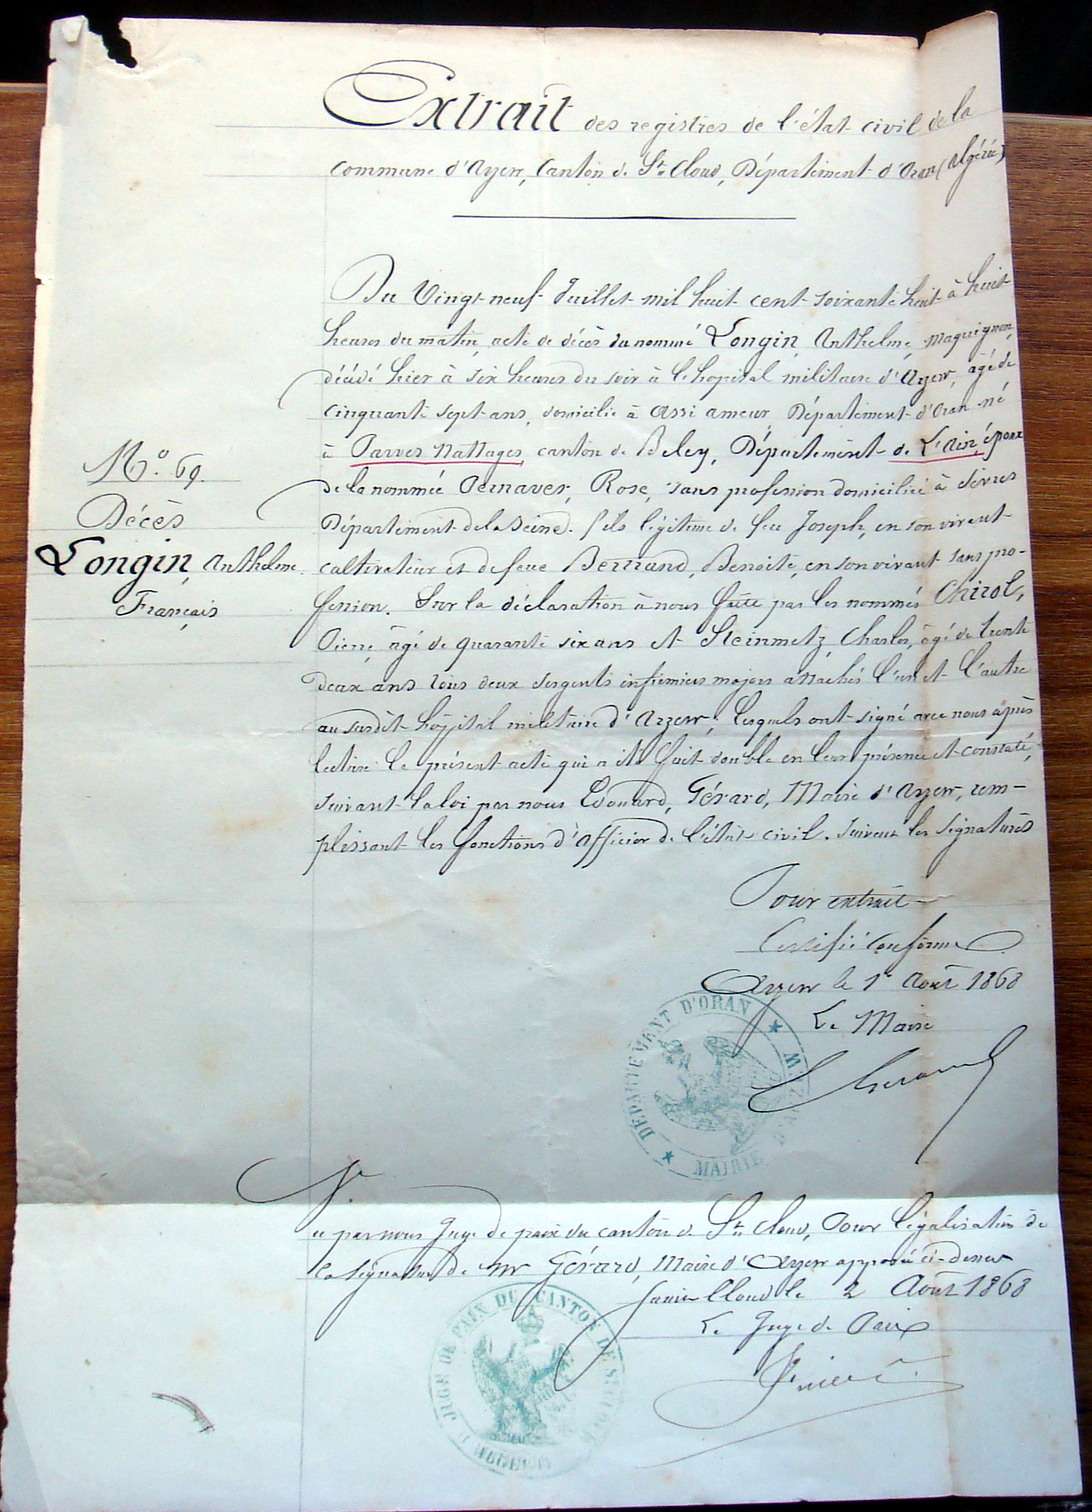 Extrait des registres de l'état civil de la
commune d'Arzew, Canton de St Cloud, Département d'Oran (Algérie)
Du Vingt-neuf Juillet mil huit cent soixante huit à huit
heures du matin, acte de décès du nommé Longin, Anthelme, maquignon,
décédé hier à six heures du soir à l'hopital militaire d'Arzew, agé de
cinquante sept ans, domicilié à Assi ameur, Département d'Oran né
à Parves Nattages, canton de Beley, Département de L'Ain, époux
de la nommée Pernaves, Rose, sans profession domiciliée à Sèvres
Département de la Seine. fils légitime de feu Joseph, en son vivant
cultivateur et de feue Bertrand, Benoite, en son vivant sans pro-
fession. Sur la déclaration à nous faite par les nommés Chirol,
Pierre, âgé de quarante six ans et Steinmetz, Charles, âgé de trente
deux ans tous deux sergents infirmiers majors attachés l'un et l'autre
au susdit hôpital militaire d'Arzew; lesquels ont signé avec nous après
lecture le présent acte qui a été fait double en leur présence et constaté,
suivant la loi par nous Edouard, Gérard, Maire d'Arzew, rem-
plissant les fonctions d'officier de l'état civil. Suivent les signatures
No. 69.
Décès
Longin, Anthelme.
Français
Pour extrait
Certifié conforme
Arzew le 1er Août 1868
Le Maire
DEPARTEMENT D'ORAN
MAIRIE
V.
u par nous Juge de paix du canton de St Cloud, Pour légalisation de
la signature de Mr Gérard, Maire d'Arzew apposée ci-dessus
Saint Cloud le 2 Août 1868
Le Juge de Paix
JUGE DE PAIX DU CANTON DE ST CLOUD